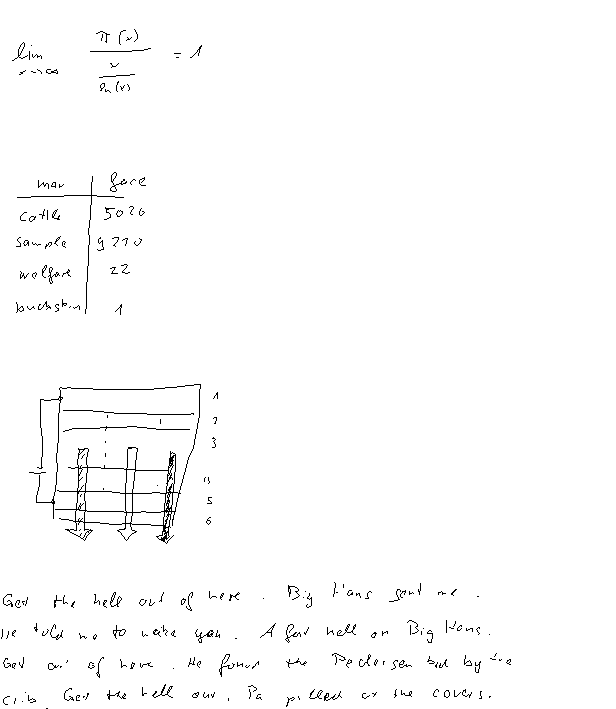 lim π(x)
x→∞ x = 1
ln(x)
max face
cattle 5020
sample 9210
welfare 22
buckskin 1
1
2
3
5
6
Get the hell out of here. Big Hans sent me.
He told me to wake you. A fat hell on Big Hans.
Get out of here. He found the Pedersen kid by the
crib. Get the hell out. Pa pulled at the covers.